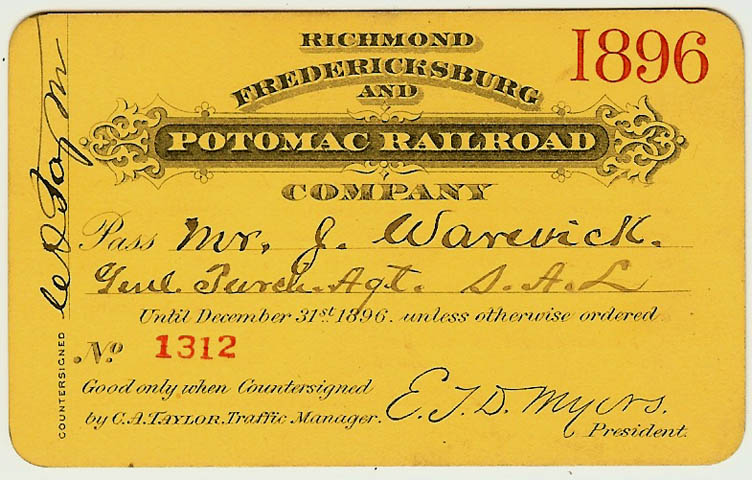 1896
RICHMOND
FREDERICKSBURG
AND
POTOMAC RAILROAD
COMPANY
Pass Mr. J. Warwick.
Genl. Purch. Agt. S. A. L
Until December 31st 1896. unless otherwise ordered
No. 1312
Good only when Countersigned
by C.A. TAYLOR, Traffic Manager.
E. T. D. Myers.
President.
COUNTERSIGNED
C A Taylor